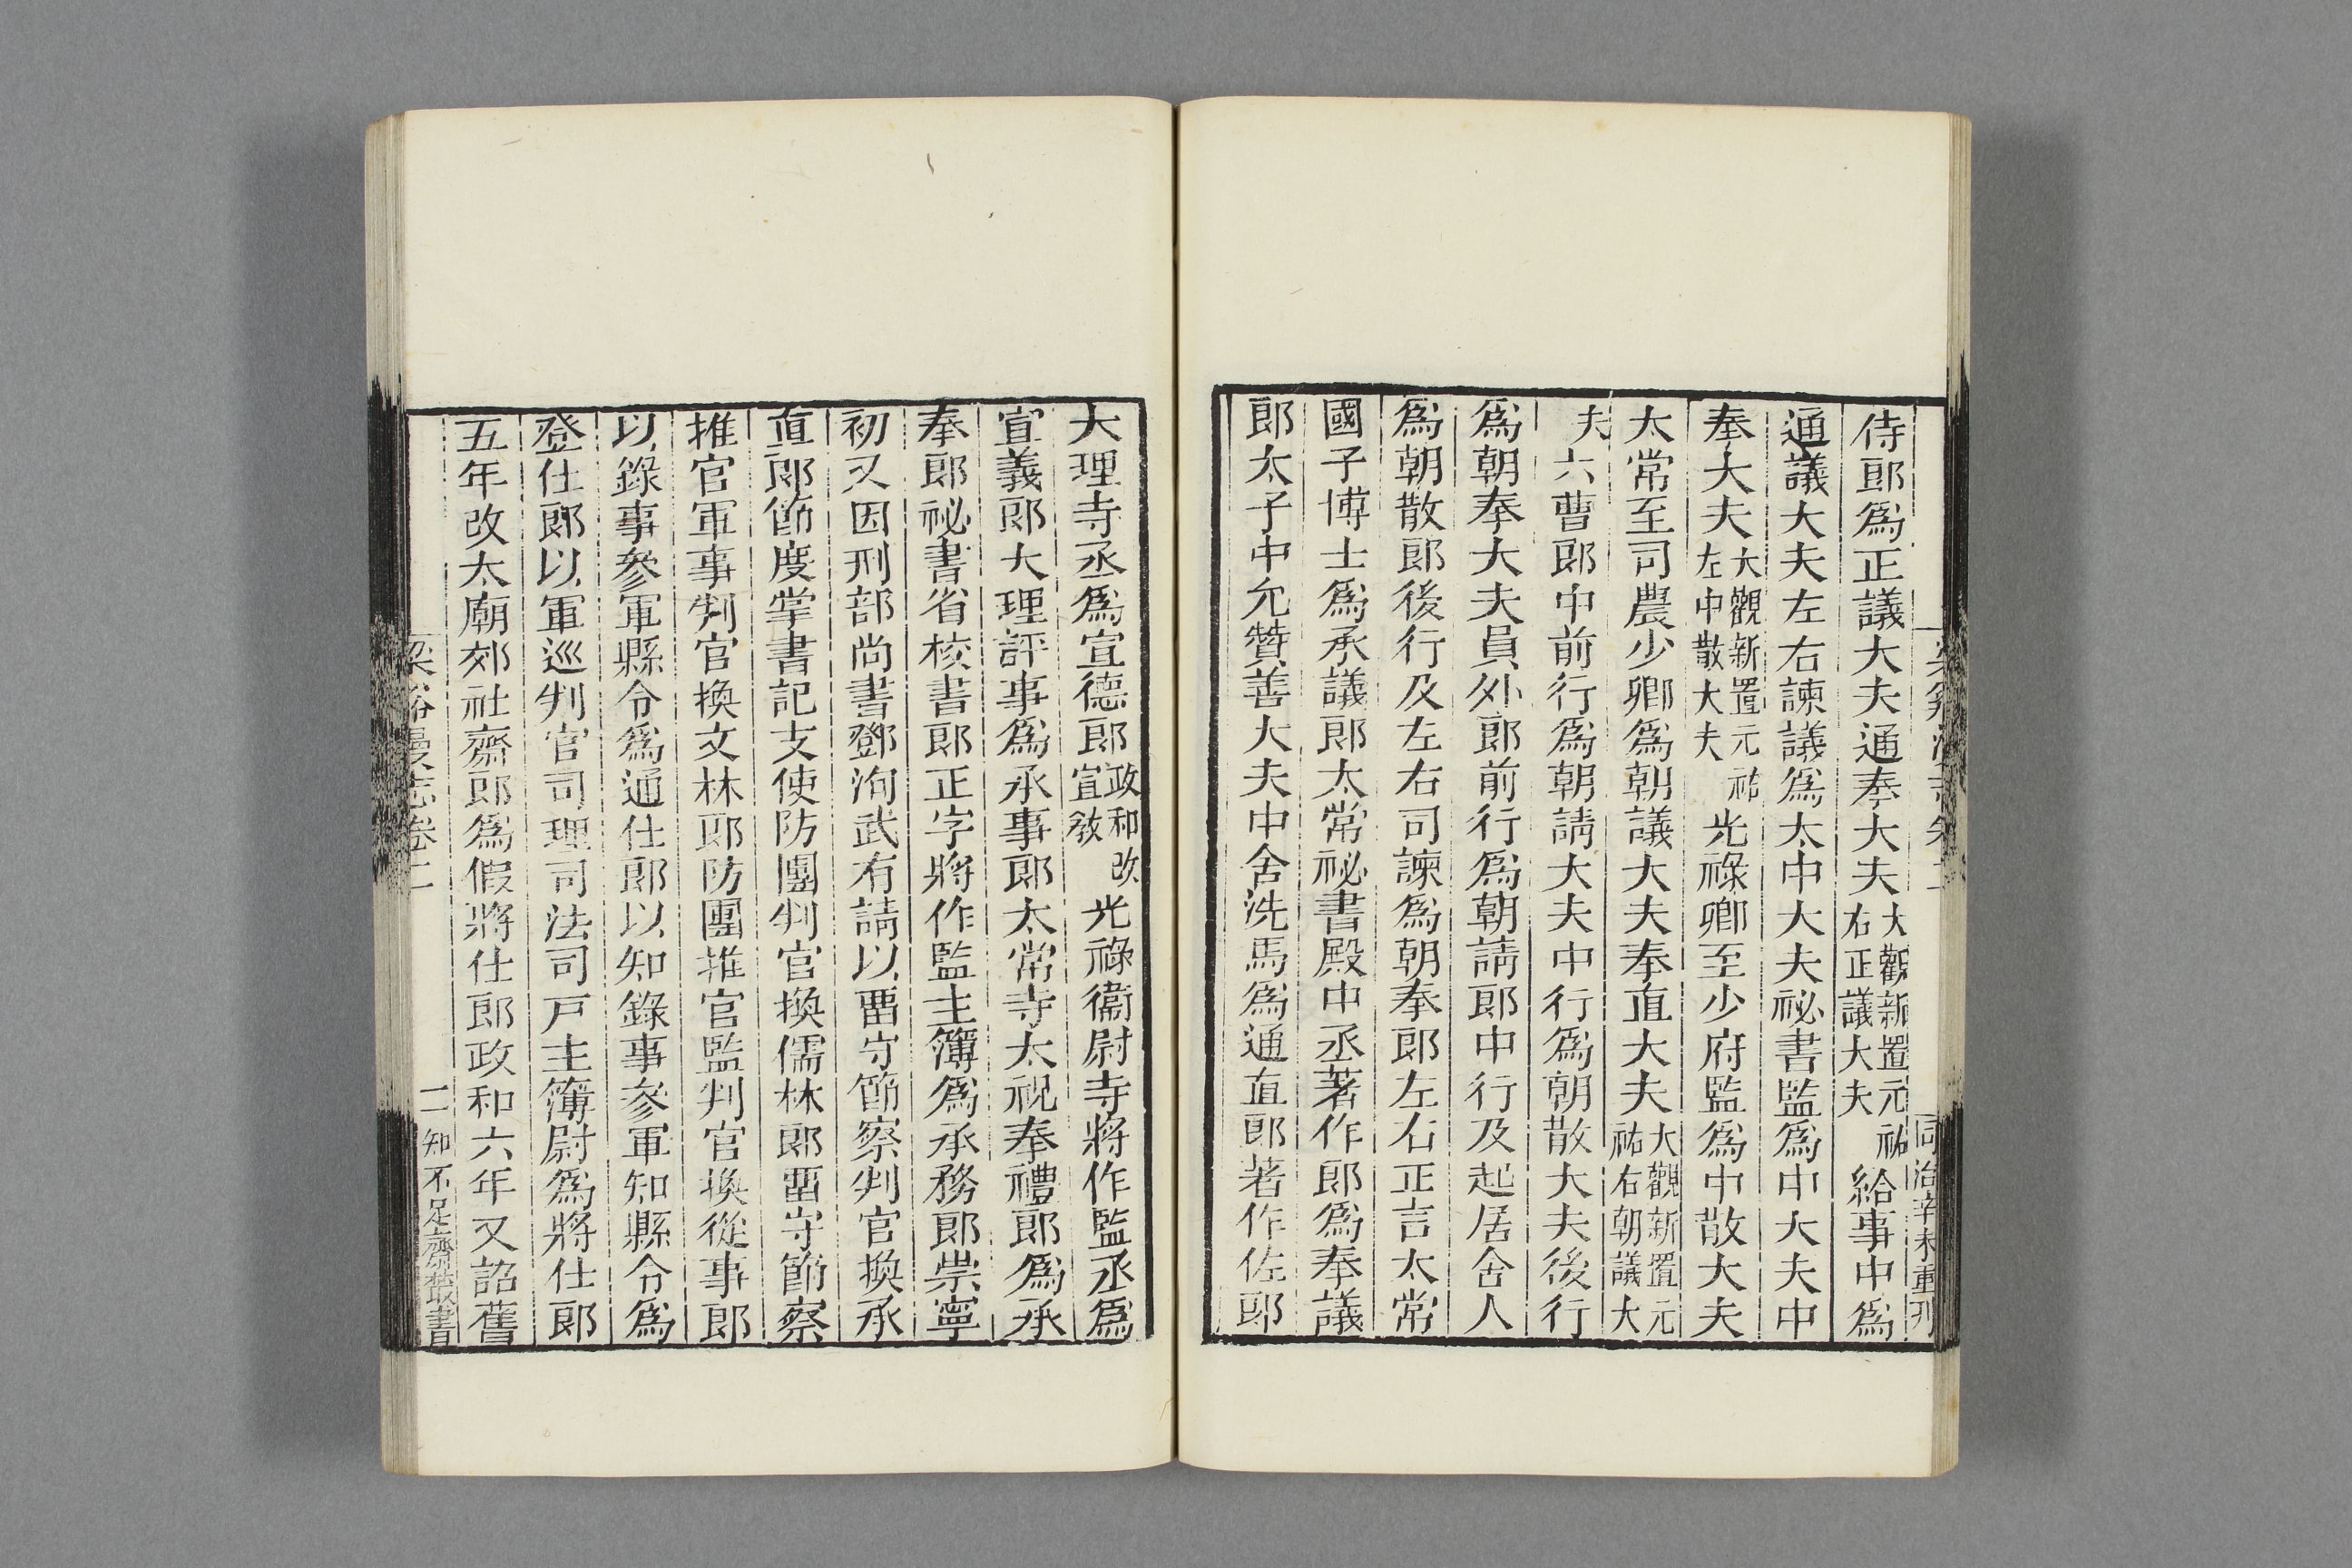 同治辛未重刊
侍郎爲正議大夫通奉大夫大觀新置元祐右正議大夫給事中爲
通議大夫左右諫議爲太中大夫祕書監爲中大夫中
奉大夫大觀新置元祐左中散大夫光祿卿至少府監爲中散大夫
太常至司農少卿爲朝議大夫奉直大夫大觀新置元祐右朝議大
夫六曹郎中前行爲朝請大夫中行爲朝散大夫後行
爲朝奉大夫員外郎前行爲朝請郎中行及起居舍人
爲朝散郎後行及左右司諫爲朝奉郎左右正言太常
國子博士爲承議郎太常祕書殿中丞著作郎爲奉議
郎太子中允贊善大夫中舍洗馬爲通直郎著作佐郎
大理寺丞爲宣德郎政和改宣教光祿衞尉寺將作監丞爲
宣義郎大理評事爲承事郎太常寺太祝奉禮郎爲承
奉郎祕書省校書郎正字將作監主簿爲承務郎崇寧
初又因刑部尚書鄧洵武有請以畱守節察判官換承
直郎節度掌書記支使防團判官換儒林郎畱守節察
推官軍事判官換文林郎防團推官監判官換從事郎
以錄事參軍縣令爲通仕郎以知錄事參軍知縣令爲
登仕郎以軍巡判官司理司法司戸主簿尉爲將仕郎
五年改太廟郊社齋郎爲假將仕郎政和六年又詔舊
梁谿漫志卷二 二 知不足齋叢書